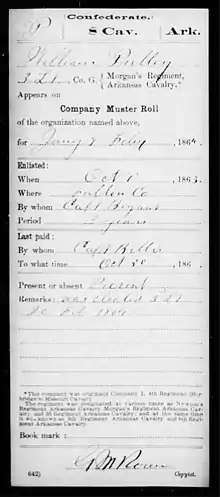 Confederate.
P
8 Cav.
Ark.
William
3 Lt, Co. G, Morgan's Regiment,
Arkansas Cavalry.*
Appears on
Company Muster Roll
of the organization named above,
for Jany & Feby, 1864.
Enlisted:
When Oct 1, 1863.
Where Co
By whom Capt Bryant
Period years
Last paid:
By whom Capt
To what time Oct 20, 186
Present or absent Present
Remarks: was elected 3 Lt
Feb 1864
* This company was originally Company I, 4th Regiment (Bur-
bridge's) Missouri Cavalry.
The regiment was designated at various times as Newton's
Regiment Arkansas Cavalry, Morgan's Regiment Arkansas Cav-
alry, and Regiment Arkansas Cavalry; and at the same time
it was known as 8th Regiment Arkansas Cavalry and
Regiment Arkansas Cavalry.
Book mark:
(642)
Copyist.